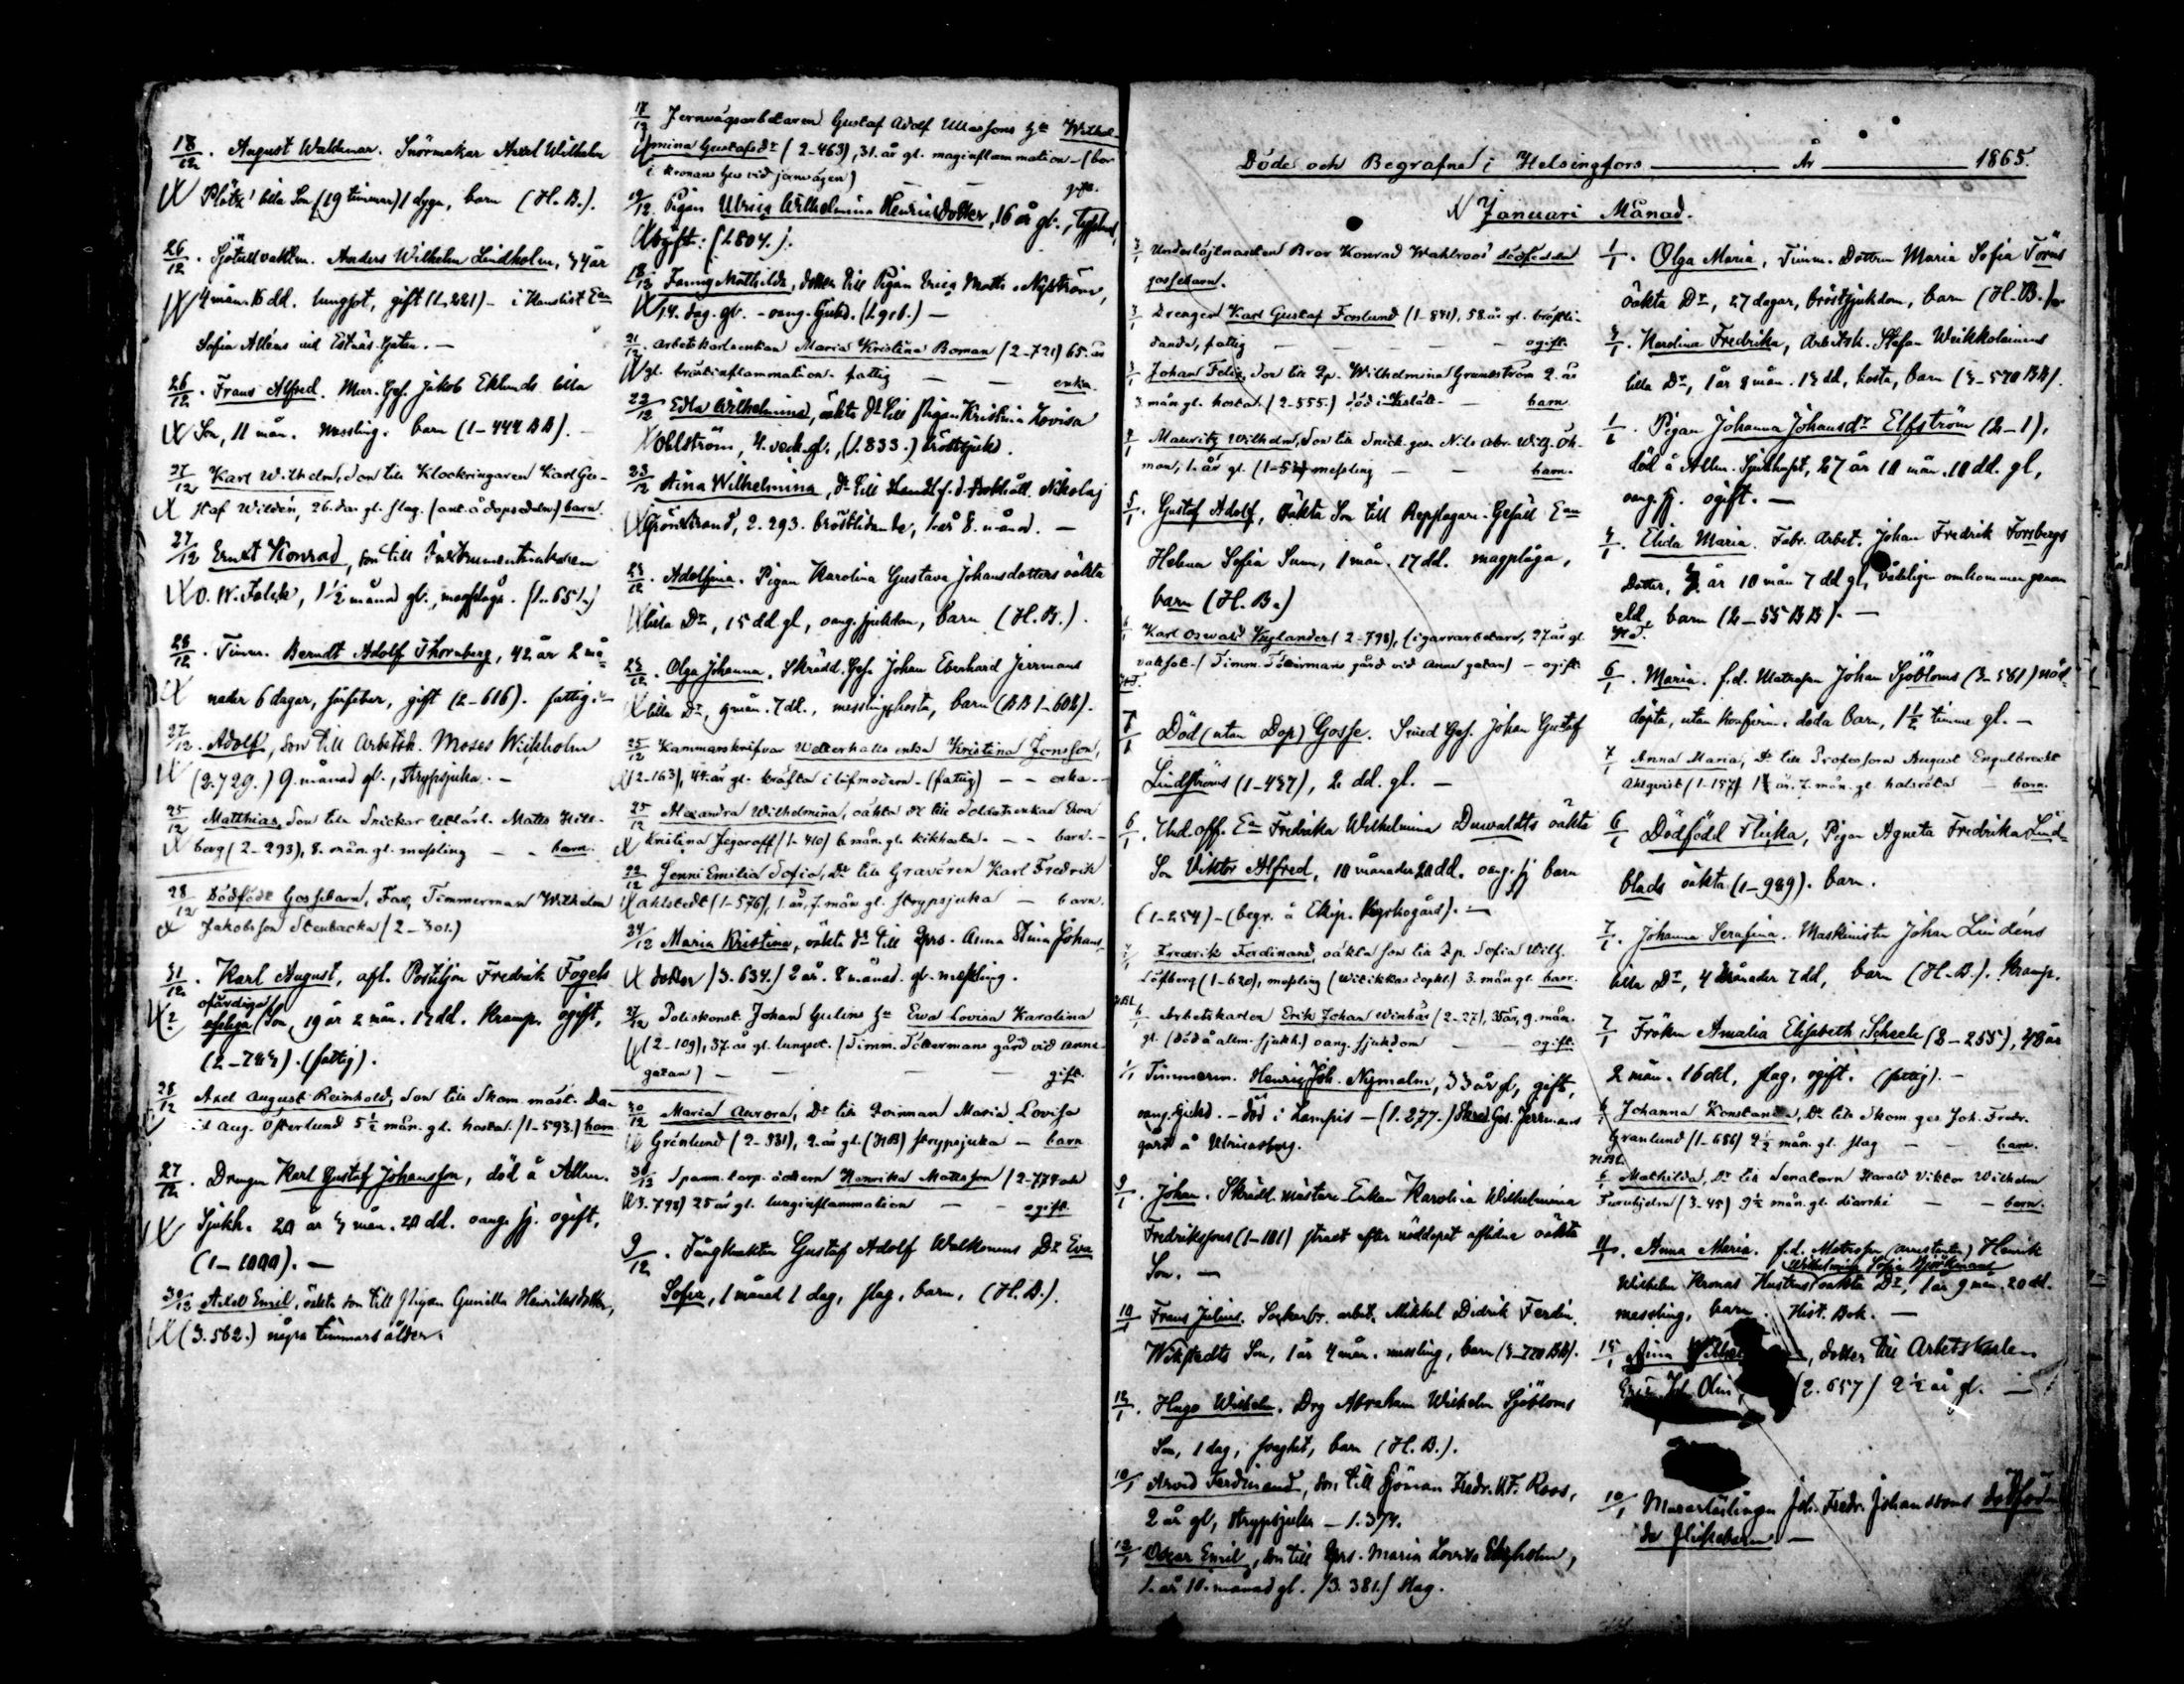 18/12. August Waldemar. Snörmakar Axel Wilhelm
lilla Son (19 timmar) 1 dygn, barn (H.B.).
26/12. Anders Wilhelm Lindholm,
4 mån. 16 dd. lungsot, gift (1,221) - i
Sofia
26/12. Frans Alfred. Mur. Ges. Jakob Eklunds lilla
Son, 11 mån. Messling. barn (1-444 BB). -
27/12 Karl Wilhelm, Son till Klockringaren Karl Gu-
staf Wildén, 26. da. gl. slag. barn.
27/12 Ernst Konrad, son till Instrumentmakaren
O. W. Falck, 1½ månad gl., magplåga. (1.651.)
28/12. Timm. Berndt Adolf Thornberg, 42 år 2 må-
nader 6 dagar, gift (2-616). fattig. -
27/12. Adolf, Son till Arbetsk. Moses Wickholm
(2.729.) 9. månad gl., strypsjuka. -
25/12 Matthias, Son till Snickar Matts Hill-
berg (2-293), 8. mån. gl. messling - - barn.
28/12 Dödfödt Gossebarn, Far, Timmerman Wilhelm
Jakobsson Stenbacka (2-301.)
31/12. Karl August, afl. Postiljon Fredrik Fogels
ofärdige
Son, 19 år 2 mån. 17 dd. Kramp. ogift,
(fattig).
28/12 Axel August Reinhold, Son till Skom. mäst. Da-
Aug. Österlund 5½ mån. gl. hosta. (1-593.) barn
27/12. Drengen Karl Gustaf Johansson, död å Allm.
Sjukh. 20 år mån. 20 dd. oang. sj. ogift,
(1-1000). -
30/12 Axel Emil, oäkta son till Pigan Gunilla Henriksdotter,
(3.562.) några timmars ålder.
18/12 Jernvägsarbetaren Gustaf Adolf Ulassons Hu Wilhel-
mina Gustafsdr (2-463), 31. år gl. maginflammation - (bor
i Kronans hus vid jernvägen) - - gift.
19/12 Pigan Ulrica Wilhelmina Henricsdotter, 16 år gl.,
ogift: (1.804.).
18/12 Fanny Mathilda, dotter till Pigan Erica Matts. Nyström,
14. dag. gl. - oang. sjukd. (1.916.) -
21/12. Arbetskarlsenkan Maria Kristina Boman (2-721) 65. år
gl. bröstinflammation. fattig - - enka.
22/12 Edla Wilhelmina, oäkta dr till Pigan Kristina Lovisa
Ohlström, 4. veck. gl., (1.833.) bröstsjukd.
23/12 Aina Wilhelmina, dr till Handl. f.d. Bokhåll. Nikolaj
Grönstrand, 2.293. bröstlidande, 1. år 8. månd. -
23/12. Adolfina. Pigan Karolina Gustava Johansdotters oäkta
lilla Dr, 15 dd gl, oang. sjukdom, barn (H.B.).
25/12. Olga Johanna. Skrädd. Ges. Johan Eberhard Jerrmans
lilla Dr, 9 mån. 7 dd., messlingshosta, barn (BB 1-602).
25/12 Kammarskrifvar Wetterhalls enka Kristina Jonsson,
(2-163), 44. år gl. kräfta i lifmodern - (fattig) - - enka. -
25/12 Alexandra Wilhelmina, oäkta dr till Soldatenkan Ewa
Kristina Jegoroff (1-410) 6 mån. gl. kikhosta. - - barn. -
22/12 Jenni Emilia Sofia, Dr till Gravören Karl Fredrik
Ahlstedt (1-576), 1. år, 7. mån gl. strypsjuka - barn.
24/12 Maria Kristina, oäkta dr till Qprs. Anna Stina Johans-
dotter (3.634.) 2 år. 8 månad. gl. messling.
27/12 Poliskonst. Johan Gulins Hu Ewa Lovisa Karolina
(2-109), 37. år gl. lungsot. (Timm. Töttermans gård vid Anne-
gatan) - - - gift.
30/12 Maria Aurora, Dr till Qvinnan Maria Lovisa
Grönlund (2-831), 2. år gl. (HB) strypsjuka - barn
30/12 Henrika Mattsson (2-774
3.798) 25 år gl. lunginflammation - - ogift
9/12. Fångvakten Gustaf Adolf Walkonens Dr Eva
Sofia, 1 månad 1 dag, slag, barn, (H.B.).
Döde och Begrafne i Helsingfors År 1865.
Januari Månad.
Underlöjtnanten Bror Konrad Wahlroos' dödfödda
gossebarn.
3/1 Drengen Karl Gustaf Forslund (1-891), 58. år gl. bröstli-
dande, fattig - - - ogift.
Johan Felix, Son till Qp. Wilhelmina Grundström 2. år
3. mån gl. hosta. (2-555.) - barn
Mauritz Wilhelm, Son till Snick. ges. Nils Abr. Wilh. Öh-
man, 1. år gl. messling - - barn.
5/1. Gustaf Adolf, oäkta Son till Repslagare-Gesäll Enn
Helena Sofia Sunn, 1 mån. 17 dd. magplåga,
barn (H.B.)
Karl Oswald Kyglander (2-798), Cigarrarbetare, 27. år gl.
(Timm. Töttermans gård vid Anne gatan) - ogift.
Död (utan Dop) Gosse. Smed Ges. Johan Gustaf
Lindströms (1-487), 2 dd. gl. -
6/1. Und. off. Enn Fredrika Wilhelmina Duwaldts oäkta
Son Viktor Alfred, 10 månader 20 dd. oang. sj. barn
(1-254) - (begr. å Ekip. Kyrkogård). -
Fredrik Ferdinand, oäkta son till Qp. Sofia Wilh.
Löfberg (1-620), messling 3. mån gl. barn.
6/1 Arbetskarlen Erik Johan Winbäs (2-27), 35 år, 9. mån.
gl. (Död å allm. sjukh.) oang. sjukdom - ogift.
Timmerm. Henric Joh. Nymalm, 33 år gl, gift,
oang. sjukd. - död i Lampis - (1.277.) Skräd Ges. Jerrmans
gård å Ulricasborg.
9/1. Johan. Skrädd. mästare-Enkan Karolina Wilhelmina
Fredrikssons (1-101) straxt efter nöddopet aflidne oäkta
Son. -
10/1 Frans Julius. Sockerbr. arbet. Mikkel Didrik Ferdin.
Wikstedts Son, 1 år 4 mån. messling, barn
12/1. Hugo Wilhelm. Drg Abraham Wilhelm Sjöbloms
Son, 1 dag, svaghet, barn (H.B.).
10/1 Arvid Ferdinand, son till Sjöman Fredr. Roos,
2 år gl, strypsjuka - 1.374.
12/1 Oskar Emil, son till Qprs. Maria Lovisa
1. år 10. månad gl. (3.381.) slag.
1/1. Olga Maria, Timm. Dottren Maria Sofia Törns
oäkta Dr, 27 dagar, bröstsjukdom, barn (H.B.)
Karolina Fredrika, Arbetsk. Stefan Weikkolainens
lilla Dr, 1 år 8 mån. 13 dd, hosta, barn
Pigan Johanna Johansdr Elfström (2-1),
död å Allm. Sjukhuset, 27 år 10 mån. 10 dd. gl,
oang. sj. ogift. -
Elida Maria. Fabr. Arbet. Johan Fredrik Forsbergs
Dotter, år 10 mån 7 dd gl, vådeligen omkommen genom
eld, barn (2-55 BB). -
6/1. Maria. f.d. Matrosen Johan Sjöbloms (3-561) nöd-
döpta, utan Konfirm. döda barn, 1½ timme gl. -
7/1 Anna Maria, Dr till Professorn August Engelbrecht
Ahlqvist (1-157) år. 7. mån. gl. halsröta - barn.
6/1 Dödfödd Flicka, Pigan Agneta Fredrika Lind-
blads oäkta (1-989). barn.
7/1. Johanna Serafina. Maskinisten Johan Lindéns
lilla Dr, 4 månader 7 dd, barn (H.B.). Kramp.
7/1 Fröken Amalia Elisabeth Scheele (2-255), 48 år
2 mån. 16 dd, slag, ogift. -
Johanna Konstantia, Dr till Skom. ges. Joh. Fredr.
Granlund (1-686) 9½ mån. gl. slag - - barn.
6/1 Mathilda, Dr till Senatorn Harald Viktor Wilhelm
Furuhjelm (3-45) 9½ mån. gl. diarrhé - - barn.
Anna Maria. f.d. Matrosen (arrestanten) Henrik
Wilhelmina Sofia Björkmans
Wilhelm Kronas Hustrus oäkta Dr, 1 år 9 mån. 20 dd.
messling, barn. Hist. Bok. -
15/1 Aina dotter till Arbetskarlen
(2.657) 2½ år gl. -
10/1 Joh. Fredr. Johanssons dödföd-
da flickebarn. -